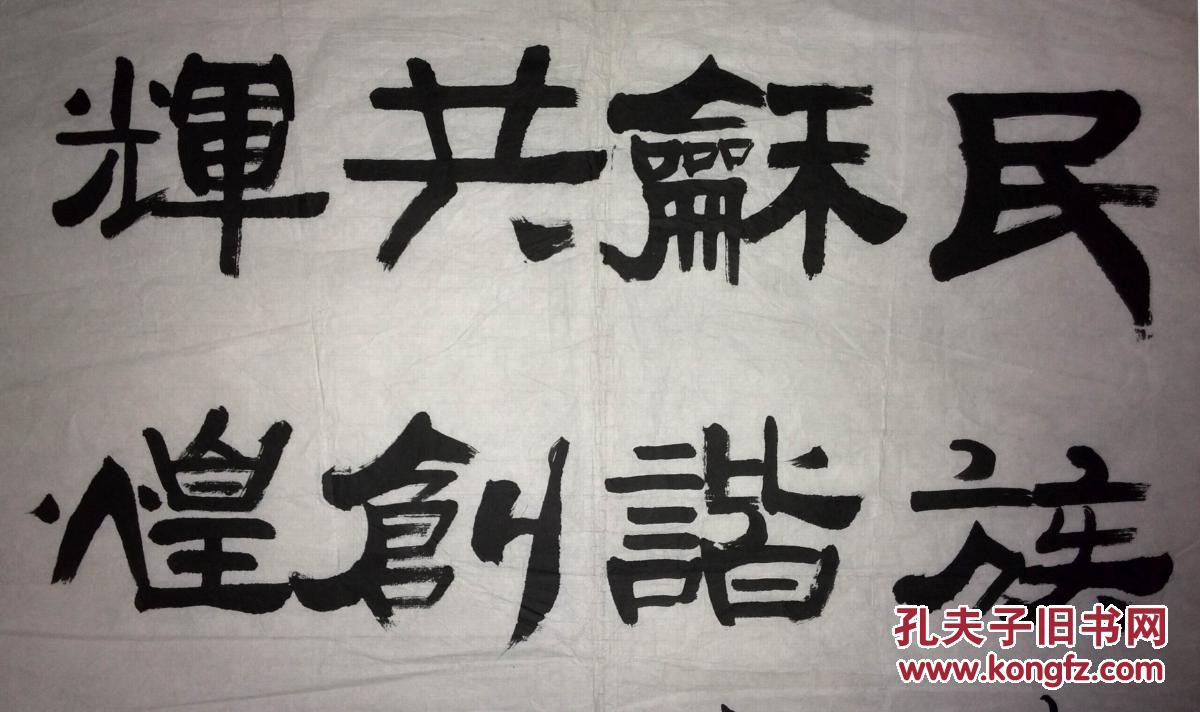 民族
龢諧
共創
輝煌
孔夫子旧书网
www.kongfz.com